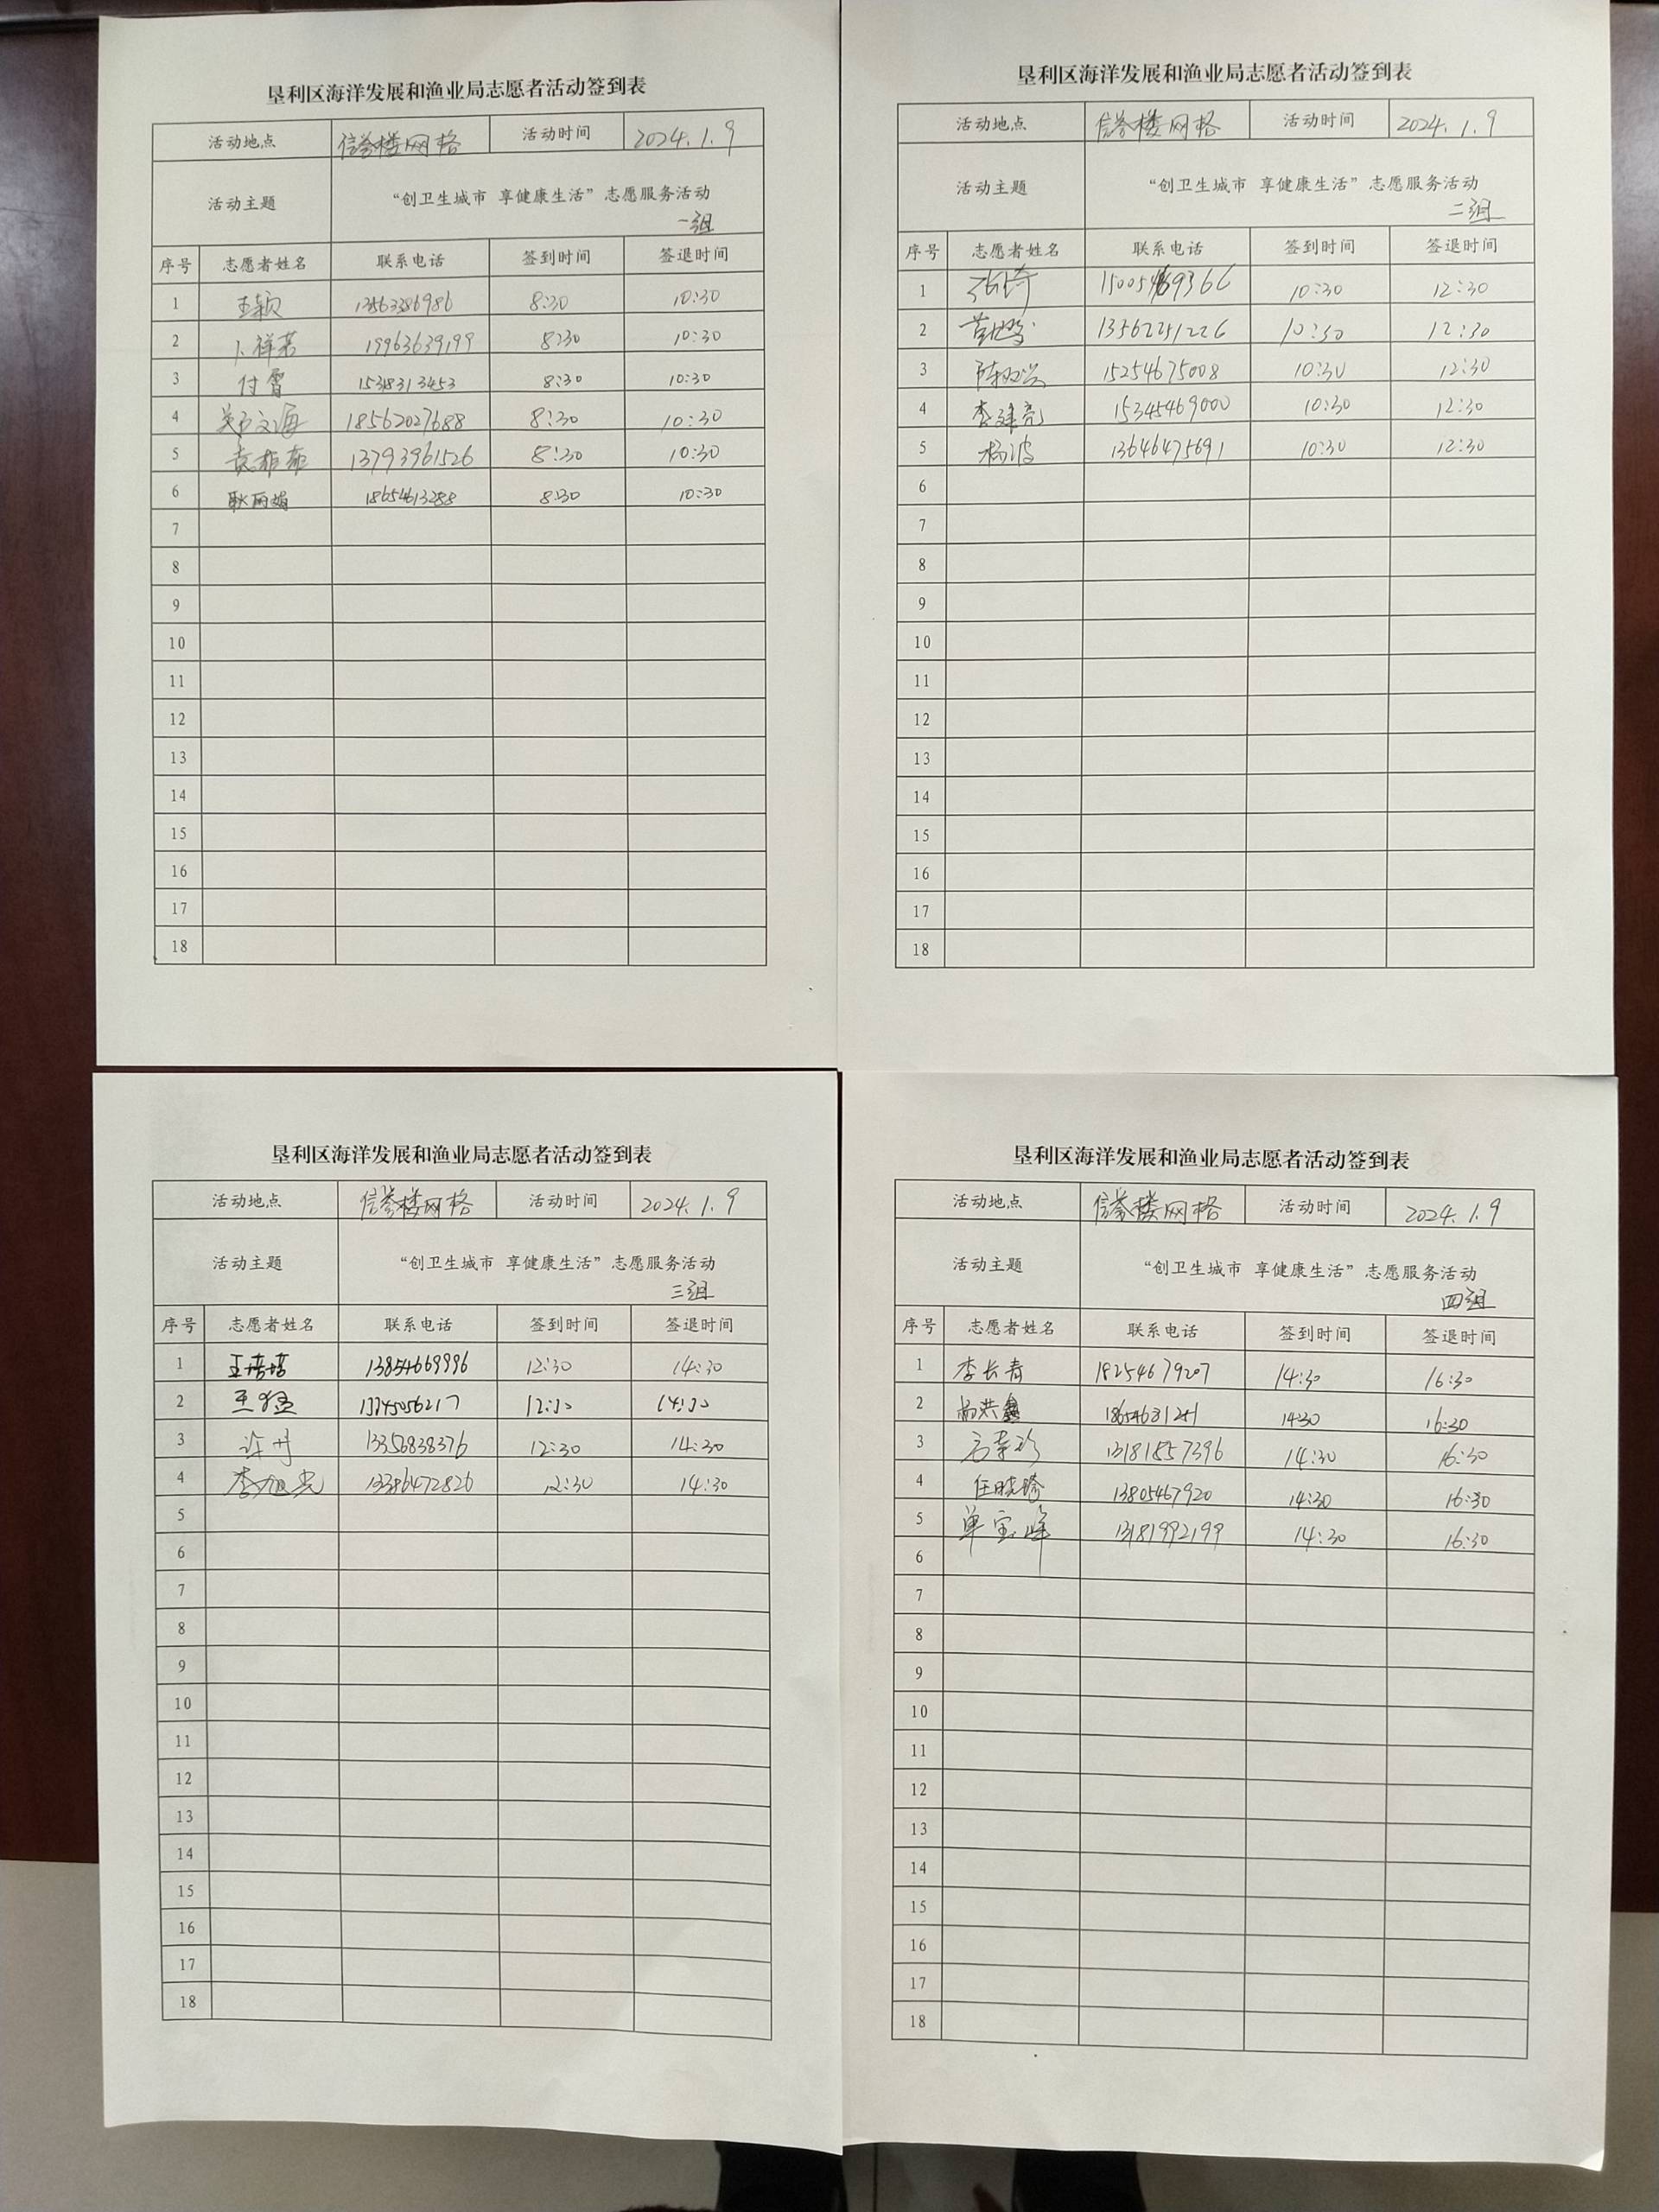 垦利区海洋发展和渔业局志愿者活动签到表
活动地点 信誉楼网格 活动时间 2024.1.9
活动主题 “创卫生城市 享健康生活”志愿服务活动
一组
序号 志愿者姓名 联系电话 签到时间 签退时间
1 王颖 13563386986 8:30 10:30
2 卜祥茗 19963639199 8:30 10:30
3 付雪 15318313453 8:30 10:30
4 关文海 18562027688 8:30 10:30
5 袁菲菲 13793961526 8:30 10:30
6 耿丙娟 18654613288 8:30 10:30
7
8
9
10
11
12
13
14
15
16
17
18
垦利区海洋发展和渔业局志愿者活动签到表
活动地点 信誉楼网格 活动时间 2024.1.9
活动主题 “创卫生城市 享健康生活”志愿服务活动
二组
序号 志愿者姓名 联系电话 签到时间 签退时间
1 15005469366 10:30 12:30
2 10:30 12:30
3 15254675008 10:30 12:30
4 李建亮 15345469000 10:30 12:30
5 杨波 13646475691 10:30 12:30
6
7
8
9
10
11
12
13
14
15
16
17
18
垦利区海洋发展和渔业局志愿者活动签到表
活动地点 信誉楼网格 活动时间 2024.1.9
活动主题 “创卫生城市 享健康生活”志愿服务活动
三组
序号 志愿者姓名 联系电话 签到时间 签退时间
1 王培培 13854669996 12:30 14:30
2 王猛 12:30 14:30
3 许丹 13356838376 12:30 14:30
4 李旭光 13386472826 12:30 14:30
5
6
7
8
9
10
11
12
13
14
15
16
17
18
垦利区海洋发展和渔业局志愿者活动签到表
活动地点 信誉楼网格 活动时间 2024.1.9
活动主题 “创卫生城市 享健康生活”志愿服务活动
四组
序号 志愿者姓名 联系电话 签到时间 签退时间
1 李长青 18254679207 14:30 16:30
2 尚洪鑫 18654631251 14:30 16:30
3 13181857396 14:30 16:30
4 任晓塔 13805467920 14:30 16:30
5 单宝峰 13181992199 14:30 16:30
6
7
8
9
10
11
12
13
14
15
16
17
18